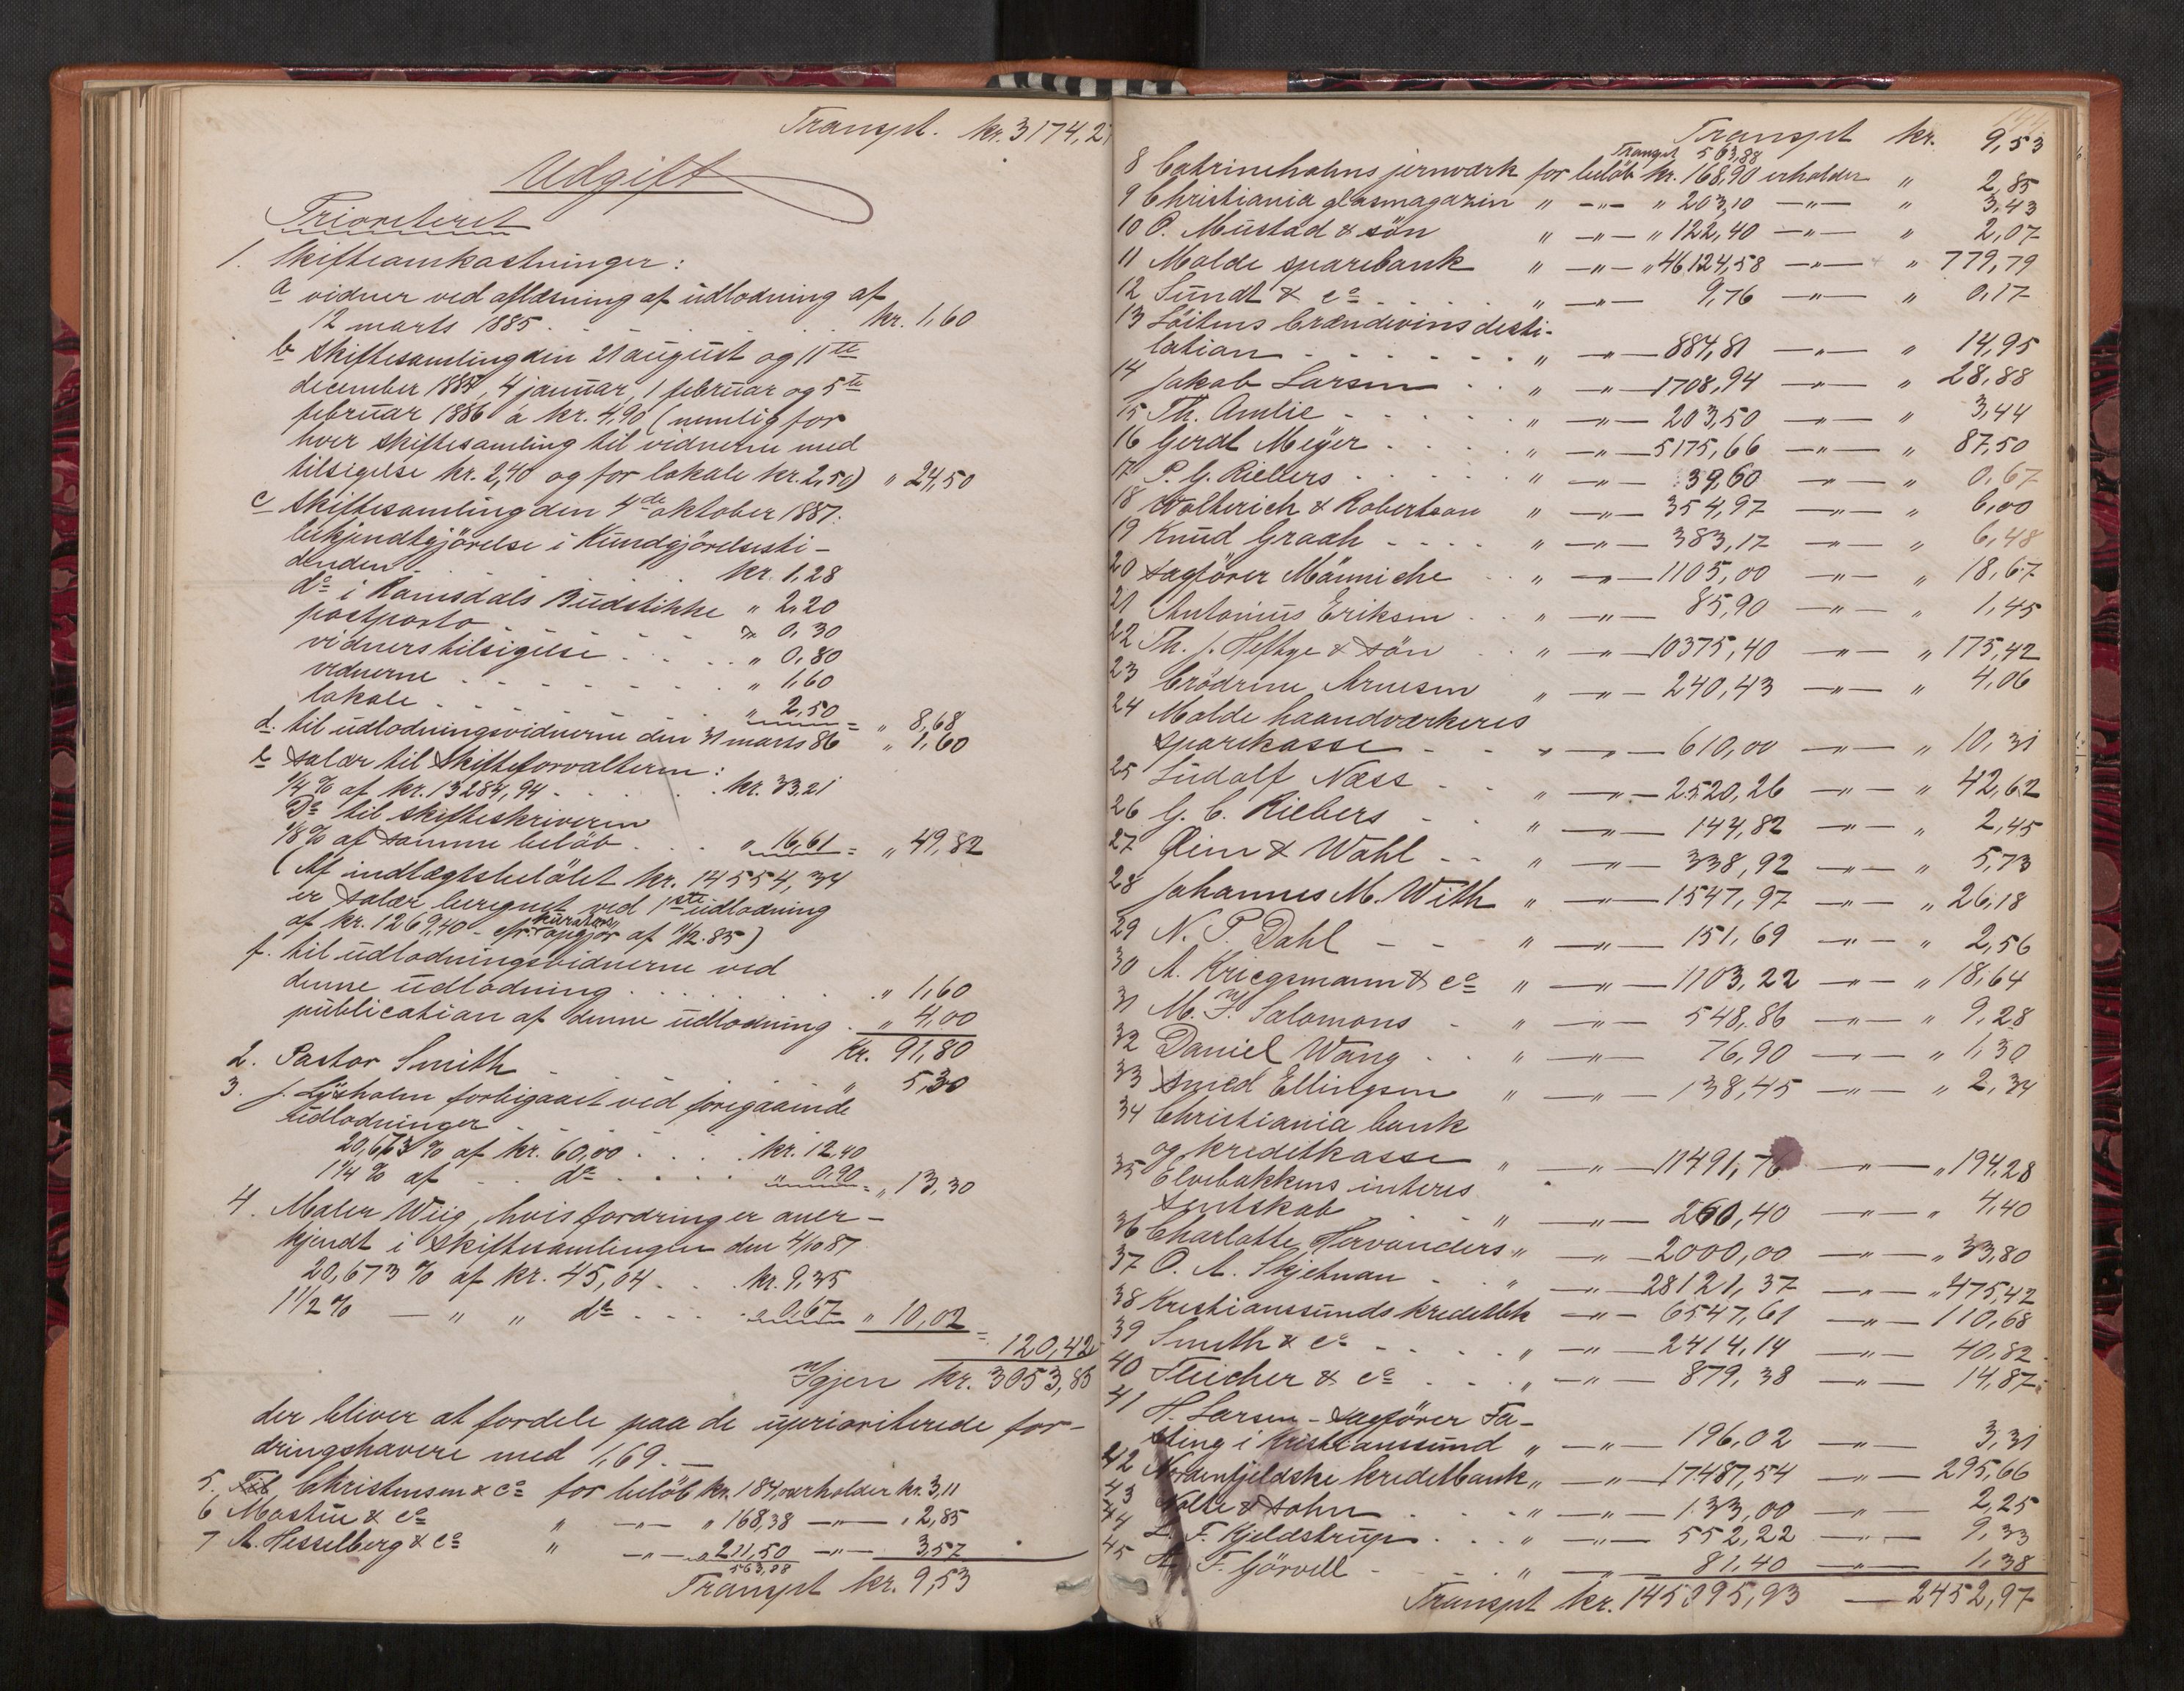 Transpt. kr. 3174,27
Udgift
Prioriteret
1. Skifteomkostninger:
a vidner ved aflæsning af udlodning af
12 marts 1885 . . . . kr. 1,60
b skiftesamling den 21 august og 11te
december 1885, 4 januar, 1 februar og 5te
februar 1886 à kr. 4,90 (nemlig for
hver skiftesamling til vidnerne med
tilsigelse kr. 2,40 og for lokale kr. 2,50) " 24,50
c skiftesamling den 4de oktober 1887:
bekjendtgjörelse i Kundgjörelsesti-
denden . . . kr. 1,28
do i Romsdals Budstikke " 2,20
postporto . . . " 0,30
vidners tilsigelse . . . " 0,80
vidnerne . . . " 1,60
lokale . . . " 2,50 = " 8,68
d. til udlodningsvidnerne den 31 marts 86 " 1,60
e salær til Skifteforvalteren:
1/4 % af kr. 13284,94 . . . kr. 33,21
Do til skifteskriveren
1/8 % af samme beløb . . . " 16,61 = " 49,82
(Af indtægtsbeløbet kr. 14554,34
er salær beregnet ved 1ste udlodning
af kr. 1269,40 - cfr. kurators opgjør af 1/2. 85)
f. til udlodningsvidnerne ved
denne udlodning . . . " 1,60
publication af denne udlodning . " 4,00
Kr. 91,80
2. Pastor Smith . . . " 5,30
3. J. Lysholm forbigaaet ved foregaaende
udlodninger
20,673 % af kr. 60,00 . . . kr. 12,40
1 1/4 % af . . do . . . " 0,90 = " 13,30
4. Maler Wiig, hvis fordring er aner-
kjendt i skiftesamlingen den 4/10 87
20,673 % af kr. 45,04 . . kr. 9,35
1 1/2 % — " " do . . . " 0,67 " 10,02 =
120,42
Igjen kr. 3053,85
der bliver at fordele paa de uprioriterede for-
dringshavere med 1,69. —
5. Christensen & co for beløb kr. 184,00 erholder kr. 3,11
6 Mostue & co " —"— " 168,38 —"— " 2,85
7 A. Hesselberg & co " —"— " 211,50 —"— 3,57
563,88
Transpt kr. 9,53
Transpt kr. 9,53
Transpt 563,88
8 Catrineholms jernværk for beløb kr. 168,90 erholder " 2,85
9 Christiania glasmagazin " —"— " 203,10 —"— " 3,43
10 O. Mustad & sön " —"— " 122,40 —"— " 2,07
11 Molde sparebank " —"— " 46124,58 —"— " 779,79
12 Sundt & co . . . " —"— 9,76 —"— " 0,17
13 Löitens brændevinsdesti-
lation . . . " —"— 884,81 —"— " 14,95
14 Jakob Larsen . . " —"— 1708,94 —"— " 28,88
15 Th. Amlie . . . " —"— 203,50 —"— " 3,44
16 Gerdt Meÿer . . . " —"— 5175,66 —"— " 87,50
17 P. G. Riebers . . . " —"— 39,60 —"— " 0,67
18 Wolterich & Robertson " —"— 354,97 —"— " 6,00
19 Knud Graah . . . " —"— 383,17 —"— " 6,48
20 sagförer Münniche . . " —"— 1105,00 —"— " 18,67
21 Antonius Eriksen . . " —"— 85,90 —"— " 1,45
22 Th. J. Heftye & sön . . " —"— 10375,40 —"— " 175,42
23 brödrene Arnesen " —"— 240,43 —"— " 4,06
24 Molde haandværkeres
sparekasse . . " —"— 610,00 —"— " 10,31
25 Ludolf Næss . . " —"— 2520,26 —"— " 42,62
26 G. C. Riebers . . " —"— 144,82 —"— " 2,45
27 Qeim & Wahl . . " —"— 338,92 —"— " 5,73
28 Johannes M. With " —"— 1547,97 —"— " 26,18
29 N. P. Dahl - - " —"— 151,69 —"— " 2,56
30 A. Kriegsmann & co " —"— 1103,22 —"— " 18,64
31 M. J. Salomons . " —"— 548,86 —"— " 9,28
32 Daniel Wang . . " —"— 76,90 —"— " 1,30
33 smed Ellingsen " —"— 138,45 —"— " 2,34
34 Christiania bank
og kreditkasse " —"— 11491,76 —"— " 194,28
35 Elvebakkens interes
sentskab . . . " —"— 260,40 —"— " 4,40
36 Charlotte Hervanders " —"— 2000,00 —"— " 33,80
37 O. A. Skjelnan . . " —"— 28121,37 —"— " 475,42
38 Kristianssunds kreditbk —"— 6547,61 —"— 110,68
39 Smith & co . . . " —"— 2414,14 —"— 40,82
40 Fleicher & co . . . " —"— 879,38 —"— 14,87
41 H. Larsen - sagförer Fa-
sting i Kristianssund " —"— 196,02 —"— 3,31
42 Nordenfjeldske kreditbank " —"— 17487,54 —"— 295,66
43 Nolte & sohn . . . " —"— 133,00 —"— 2,25
44 L. F. Kjeldstrup . . . " —"— 552,22 —"— 9,33
45 F. Görvell . . . " —"— 81,40 —"— 1,38
Transpt kr. 145395,93 — 2452,97